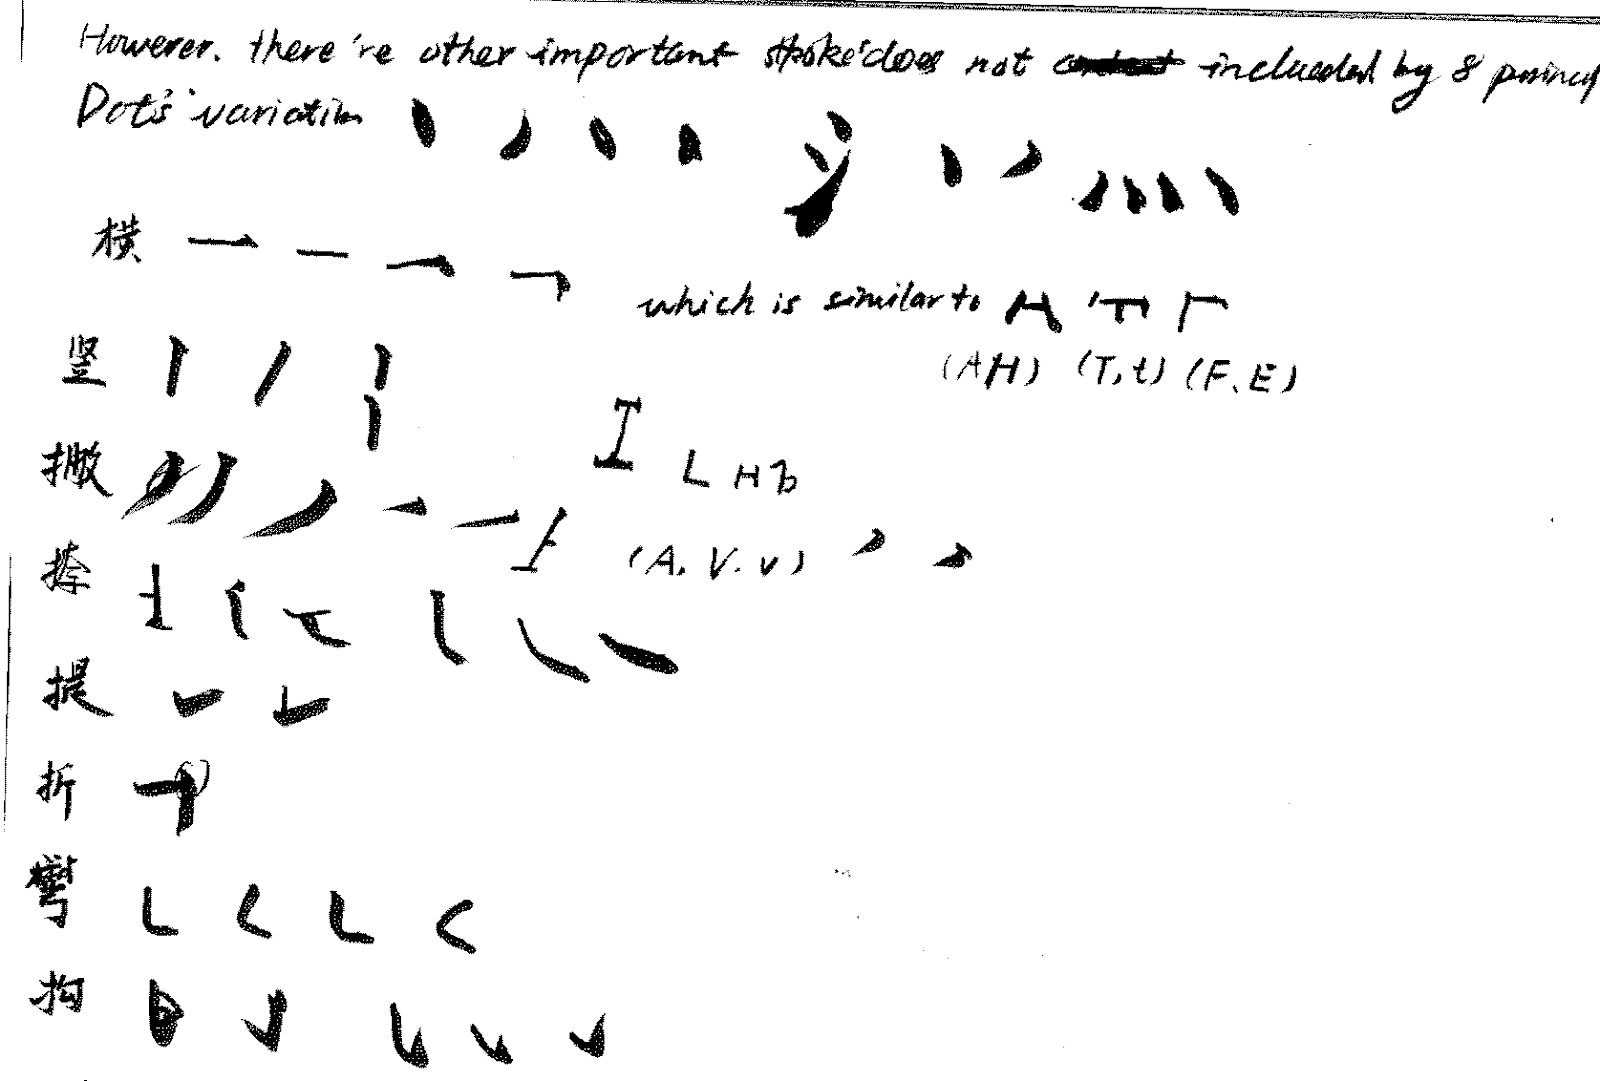 However. there're other important stroke does not included by 8
Dot's variation
横
which is similar to
(A H) (T, t) (F. E)
竖
I L H b
撇
(A. V. v)
捺
提
折
彎